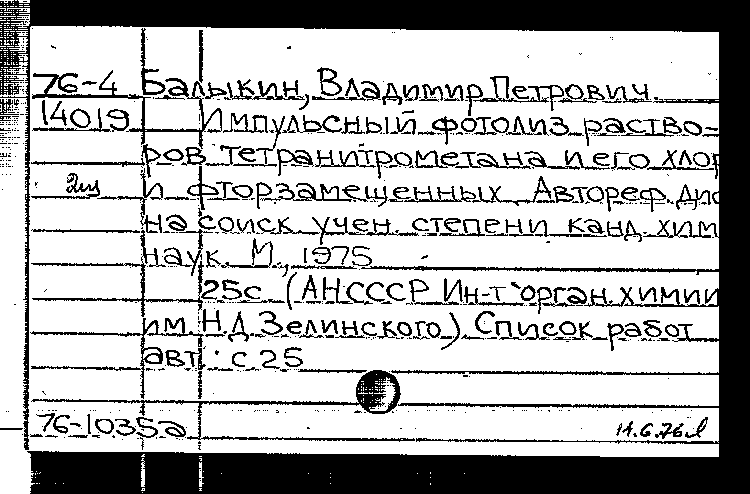 76-4 Балыкин, Владимир Петрович.
14019 Импульсный фотолиз раство-
ров тетранитрометана и его хлор
2 и фторзамещенных. Автореф. дис
на соиск. учен. степени канд. хим
наук. М., 1975
25с. (АН СССР. Ин-т орган. химии
им. Н.Д. Зелинского). Список работ
авт.: с 25
76-10352
14.6.76